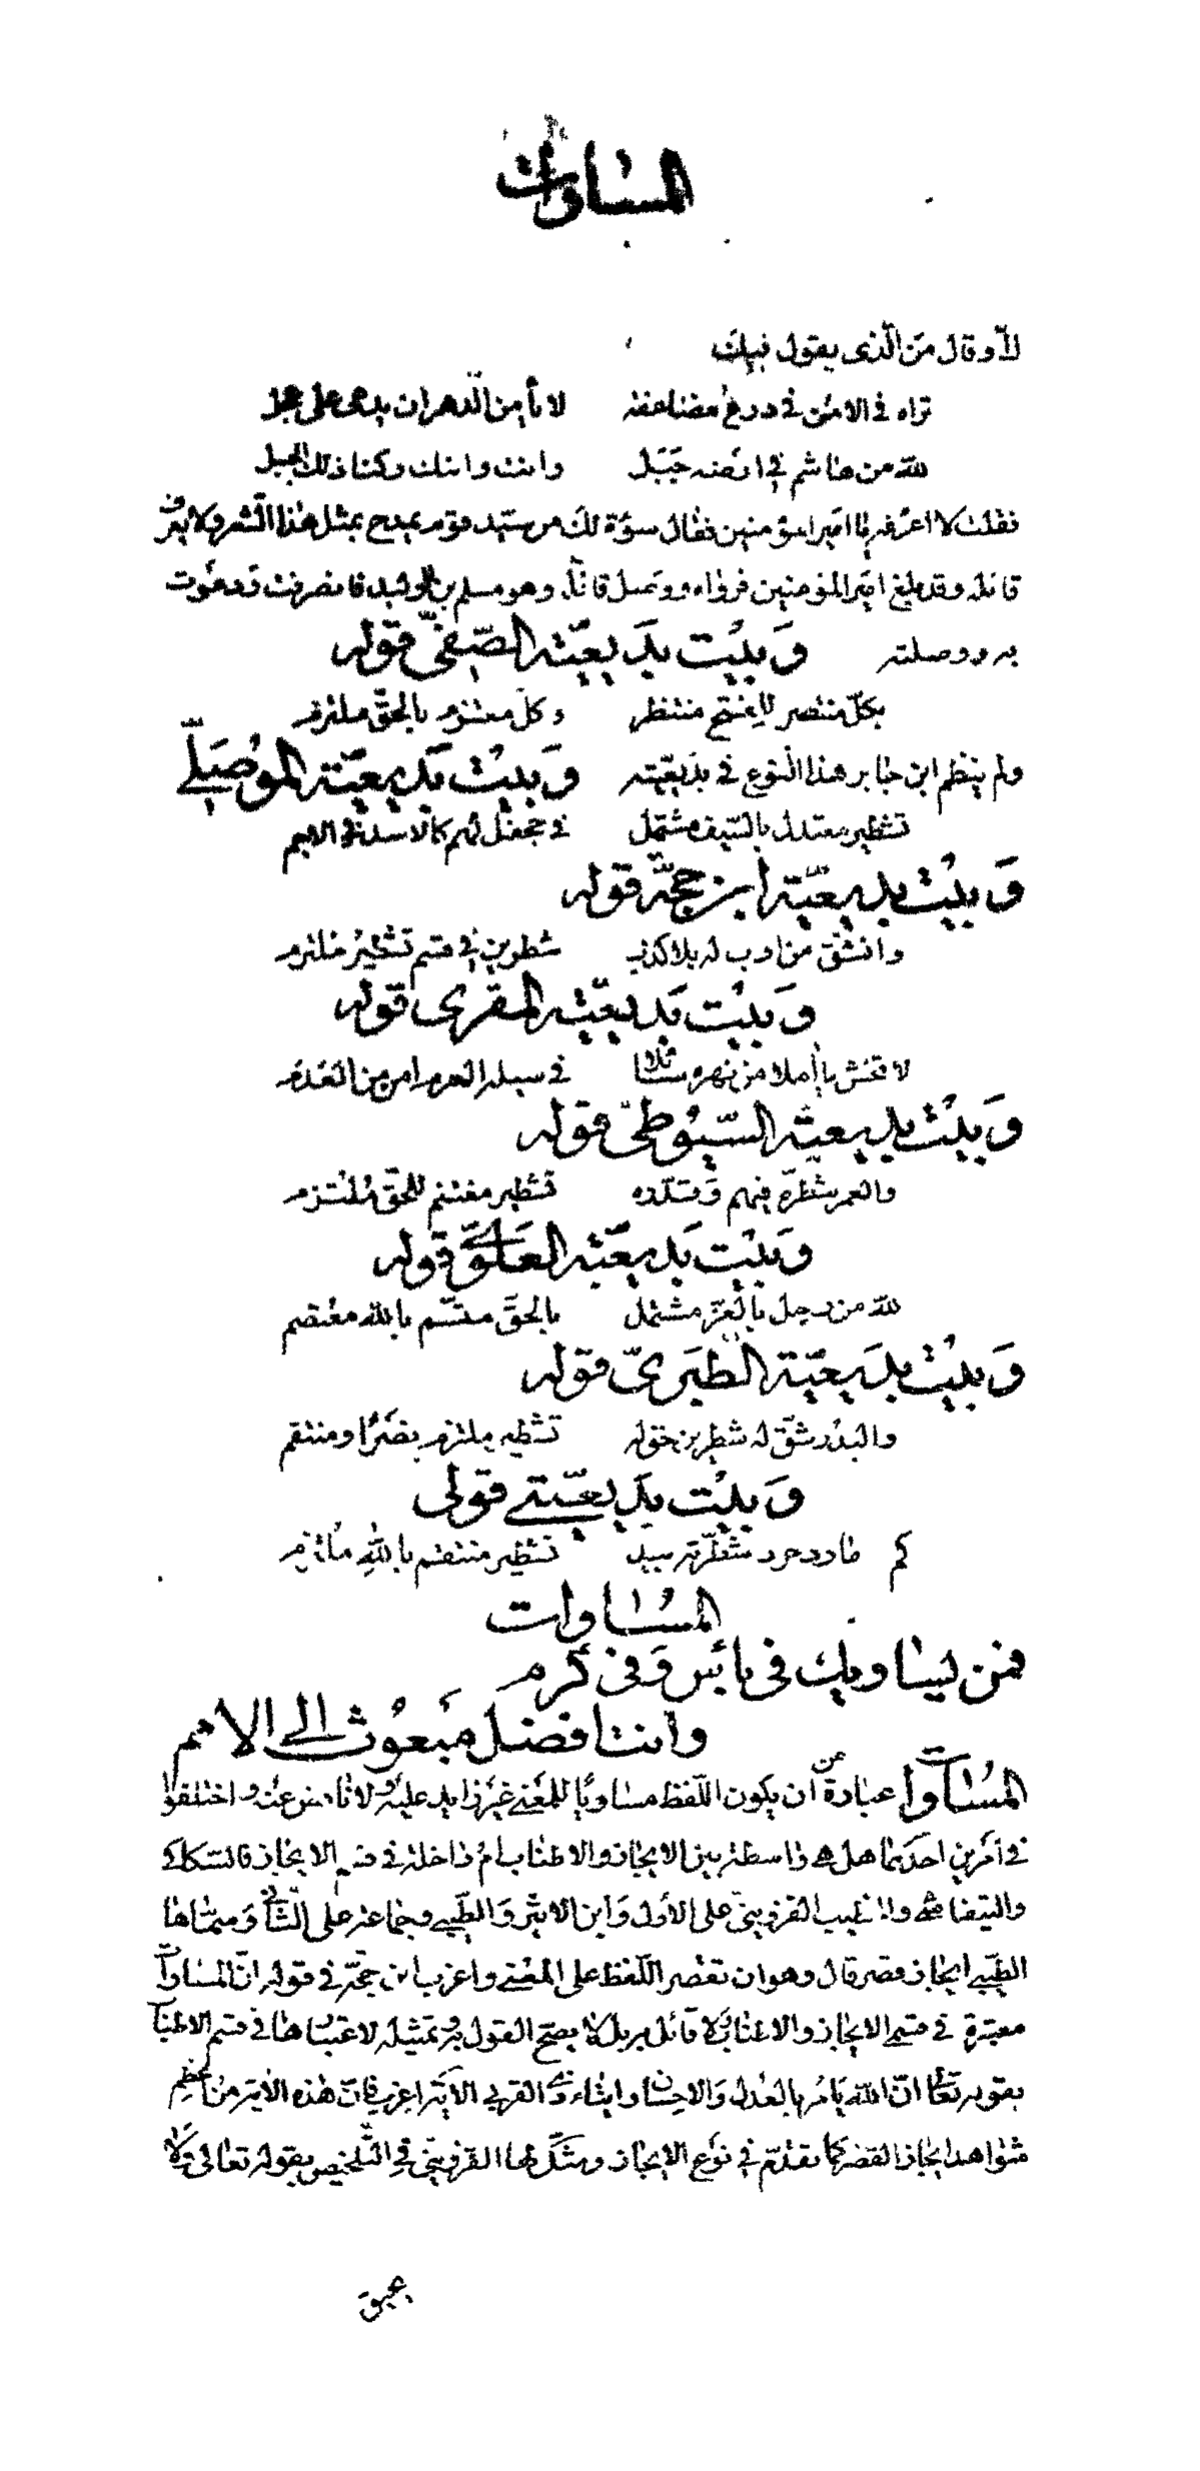 المساوات
لا وقال من الذى يقول فيك
تراه فى الامن فى درع مضاعفة لا يأمن الدهر ان يدعى على عجل
لله من هاشم فى ارضه جبل وانت وابنك ركنا ذلك الجبل
فقلت لا اعرفه يا امير المؤمنين فقال سوءة لك من سيد قوم يمدح بمثل هذا الشعر ولا يعرف
قائله وقد بلغ امير المؤمنين فرواه ووصل قائله وهو مسلم بن الوليد فانصرفت فدعوت
به ووصلته وبيت بديعية الصفى قوله
بكل منتصر للفتح منتظر وكل معتزم بالحق ملتزم
ولم ينظم ابن جابر هذا النوع فى بديعيته وبيت بديعية الموصلى
تشطير معتدل بالسيف مشتمل فى جحفل لهم كالاسد فى الاجم
وبيت بديعية ابن حجة قوله
وانشق من ادب له بلا كذب شطرين فى قسم تشطير ملتزم
وبيت بديعية المقرى قوله
لا تخش يا املا من نهره فى سيله العرم امن من العدم
وبيت بديعية السيوطى قوله
والعمر شطره فيهم وسدده تشطير مغتنم للحق ملتزم
وبيت بديعية العلوى قوله
لله من رجل بالعز مشتمل بالحق متسم بالله معتصم
وبيت بديعية الطبرى قوله
والبدر شق له شطرين خوله تشطير ملتزم نصرا ومنتقم
وبيت بديعيتى قولى
كم مارد حرد شطرته بيد تشطير منتقم بالله ملتزم
المساوات
فمن يساويك فى بأس وفى كرم
وانت افضل مبعوث الى الامم
المساوات عبارة عن ان يكون اللفظ مساويا للمعنى غير زايد عليه ولا ناقص عنه واختلفوا
فى امرين احدهما هل هى واسطة بين الايجاز والاطناب ام داخلة فى قسم الايجاز فالسكاكى
والتيفاشى والخطيب القزوينى على الاول وابن الاثير والطيبى وجماعة على الثانى وسماها
الطيبى ايجاز قصر قال وهو ان تقصر اللفظ على المعنى واغرب ابن حجة فى قوله ان المساواة
معتبرة فى قسمى الايجاز والاطناب ولا قائل به بل لا يصح القول به وتمثيله لاعتبارها فى قسم الاطناب
بقوله تعالى ان الله يأمر بالعدل والاحسان وايتاء ذى القربى الآية اغرب فان هذه الآية من اعظم
شواهد ايجاز القصر كما تقدم فى نوع الايجاز ومثل لها القزوينى فى التلخيص بقوله تعالى ولا
يحيق